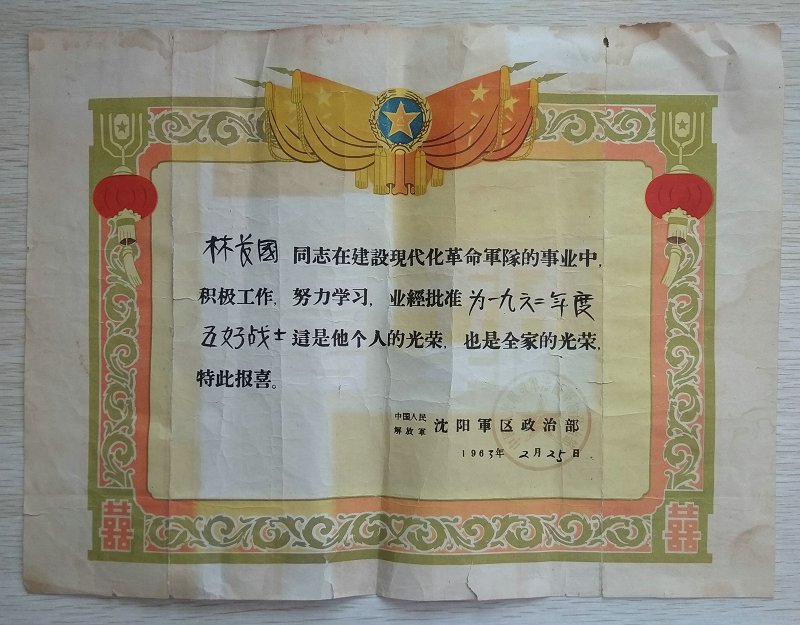 林长國 同志在建設現代化革命軍隊的事业中,
积极工作, 努力学习, 业經批准 为一九六二年度
五好战士 這是他个人的光荣, 也是全家的光荣,
特此报喜。
中国人民
解放軍 沈阳軍区政治部
1963年 2月25日
囍 囍